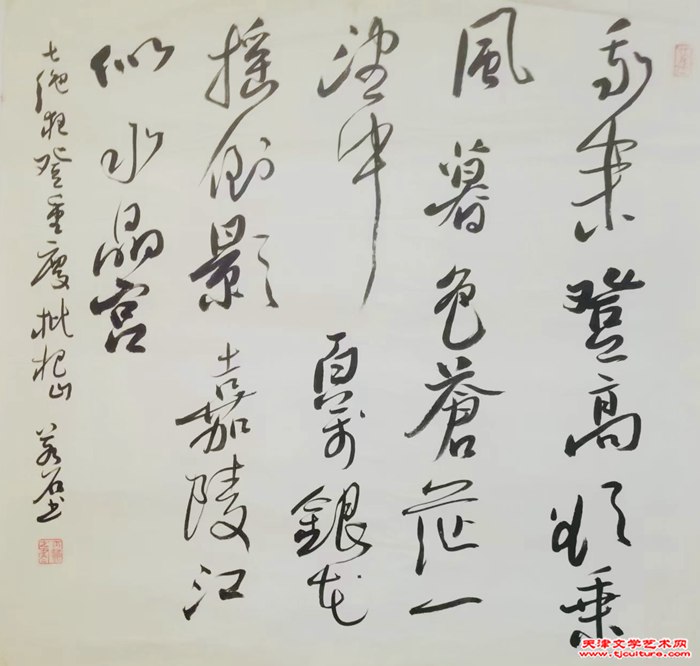 我来登高欲乘
風暮色蒼茫一
望中百萬銀花
摇倒影嘉陵江
似水晶宫
七绝登重慶枇杷山 若石书
天津文学艺术网
www.tjculture.com